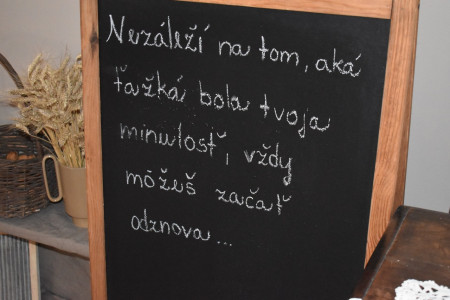 Nezáleží na tom, aká
ťažká bola tvoja
minulosť, vždy
môžeš začať
odznova...